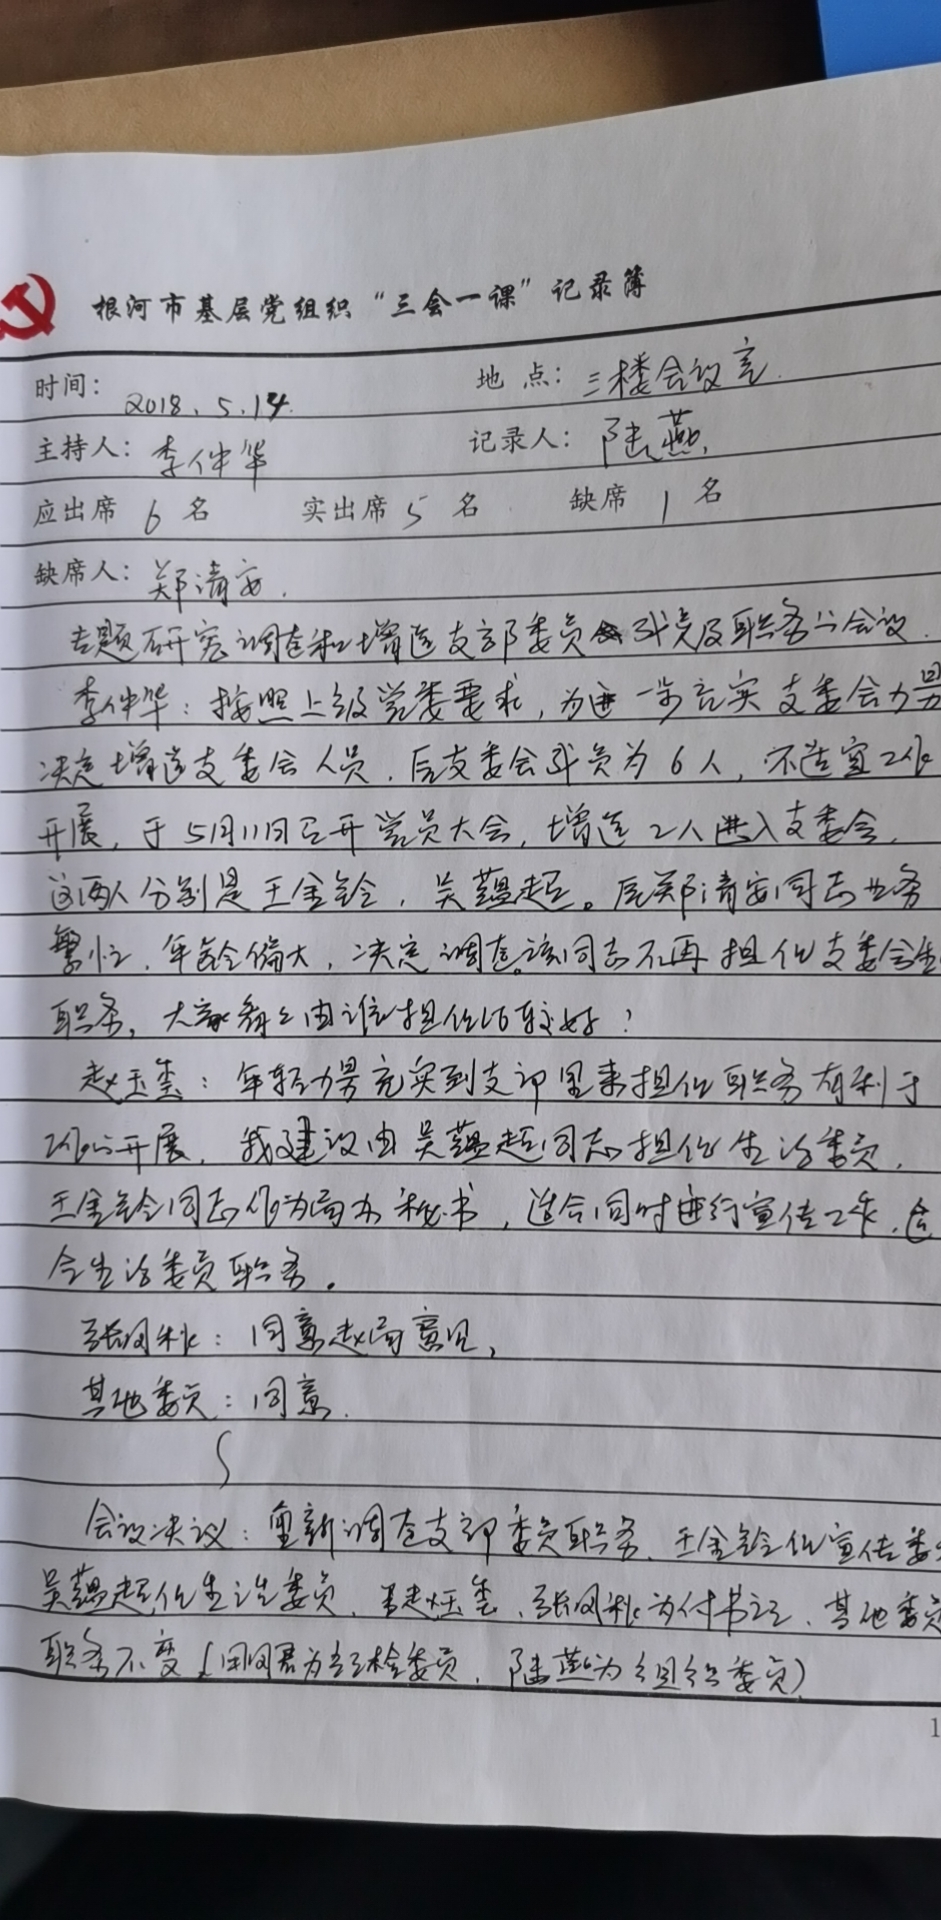 根河市基层党组织“三会一课”记录簿
时间：2018.5.14. 地点：三楼会议室.
主持人：李仲华 记录人：陆燕.
应出席 6 名 实出席 5 名 缺席 1 名
缺席人：郑清安.
专题研究调查和增选支部委员成员及职务的会议.
李仲华：按照上级党委要求，为进一步充实支委会力
决定增选支委会人员.后支委会成员为6人，不适宜工作
开展，于5月11日召开党员大会，增选2人进入支委会.
这两人分别是王金铃，吴蕴超。后郑清安同志业务
繁忙.年龄偏大，决定调查该同志不再担任支委会
职务，大家看看由谁担任比较好？
赵玉玺：年轻力 充实到支部里来担任职务有利于
工作开展.我建议由吴蕴超同志担任生活委员.
王金铃同志作为局办秘书，适合同时进行宣传工作.
生活委员职务。
张凤秋：同意赵局意见，
其他委员：同意.
会议决议：重新调查支部委员职务.王金铃任宣传委
吴蕴超任生活委员.赵玉玺.张凤秋为付书记.其他委员
职务不变（田凤君为纪检委员.陆燕为组织委员）
1